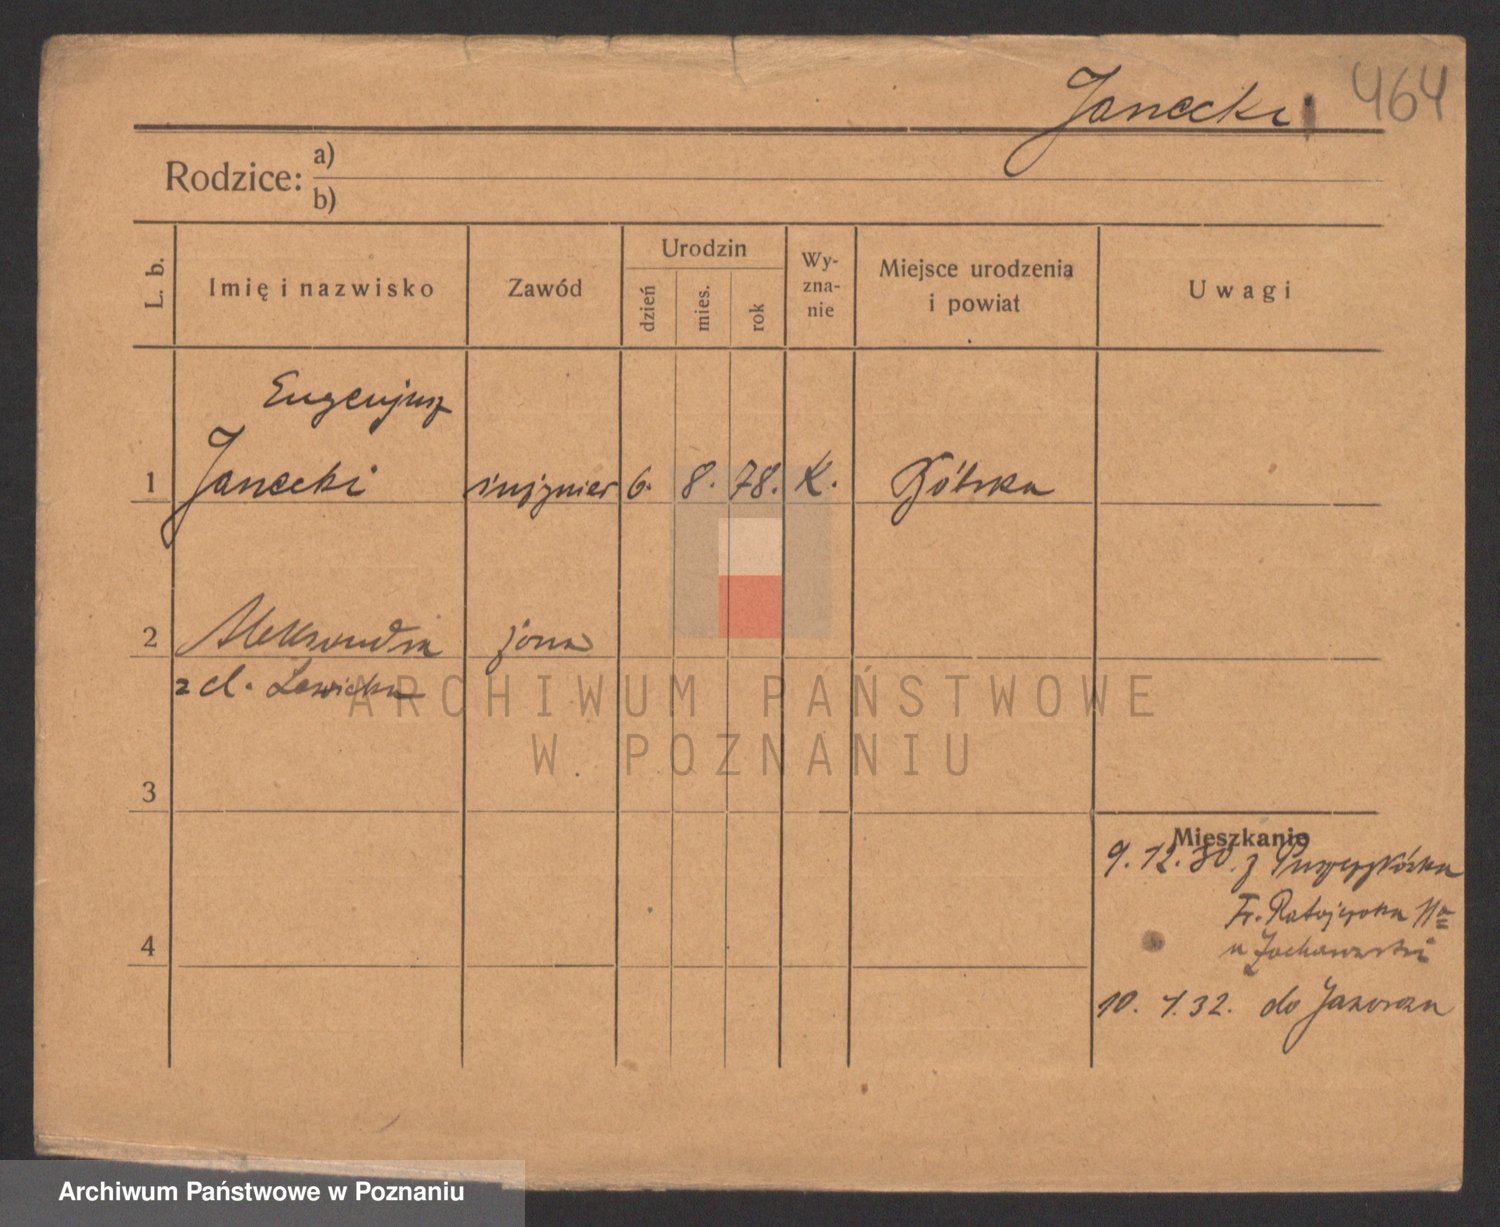 Janecki 464
Rodzice: a)
b)
L. b. Imię i nazwisko Zawód Urodzin dzień mies. rok Wy-zna-nie Miejsce urodzenia i powiat Uwagi
Eugenjusz
1 Janecki inżynier 6. 8. 78. K.
2 Aleksandra żona
z d. Lewicka
3
Mieszkanie
9. 12. 30. z
Fr. Ratajczaka 11a
u
4
10. 1. 32. do
ARCHIWUM PAŃSTWOWE
W POZNANIU
Archiwum Państwowe w Poznaniu